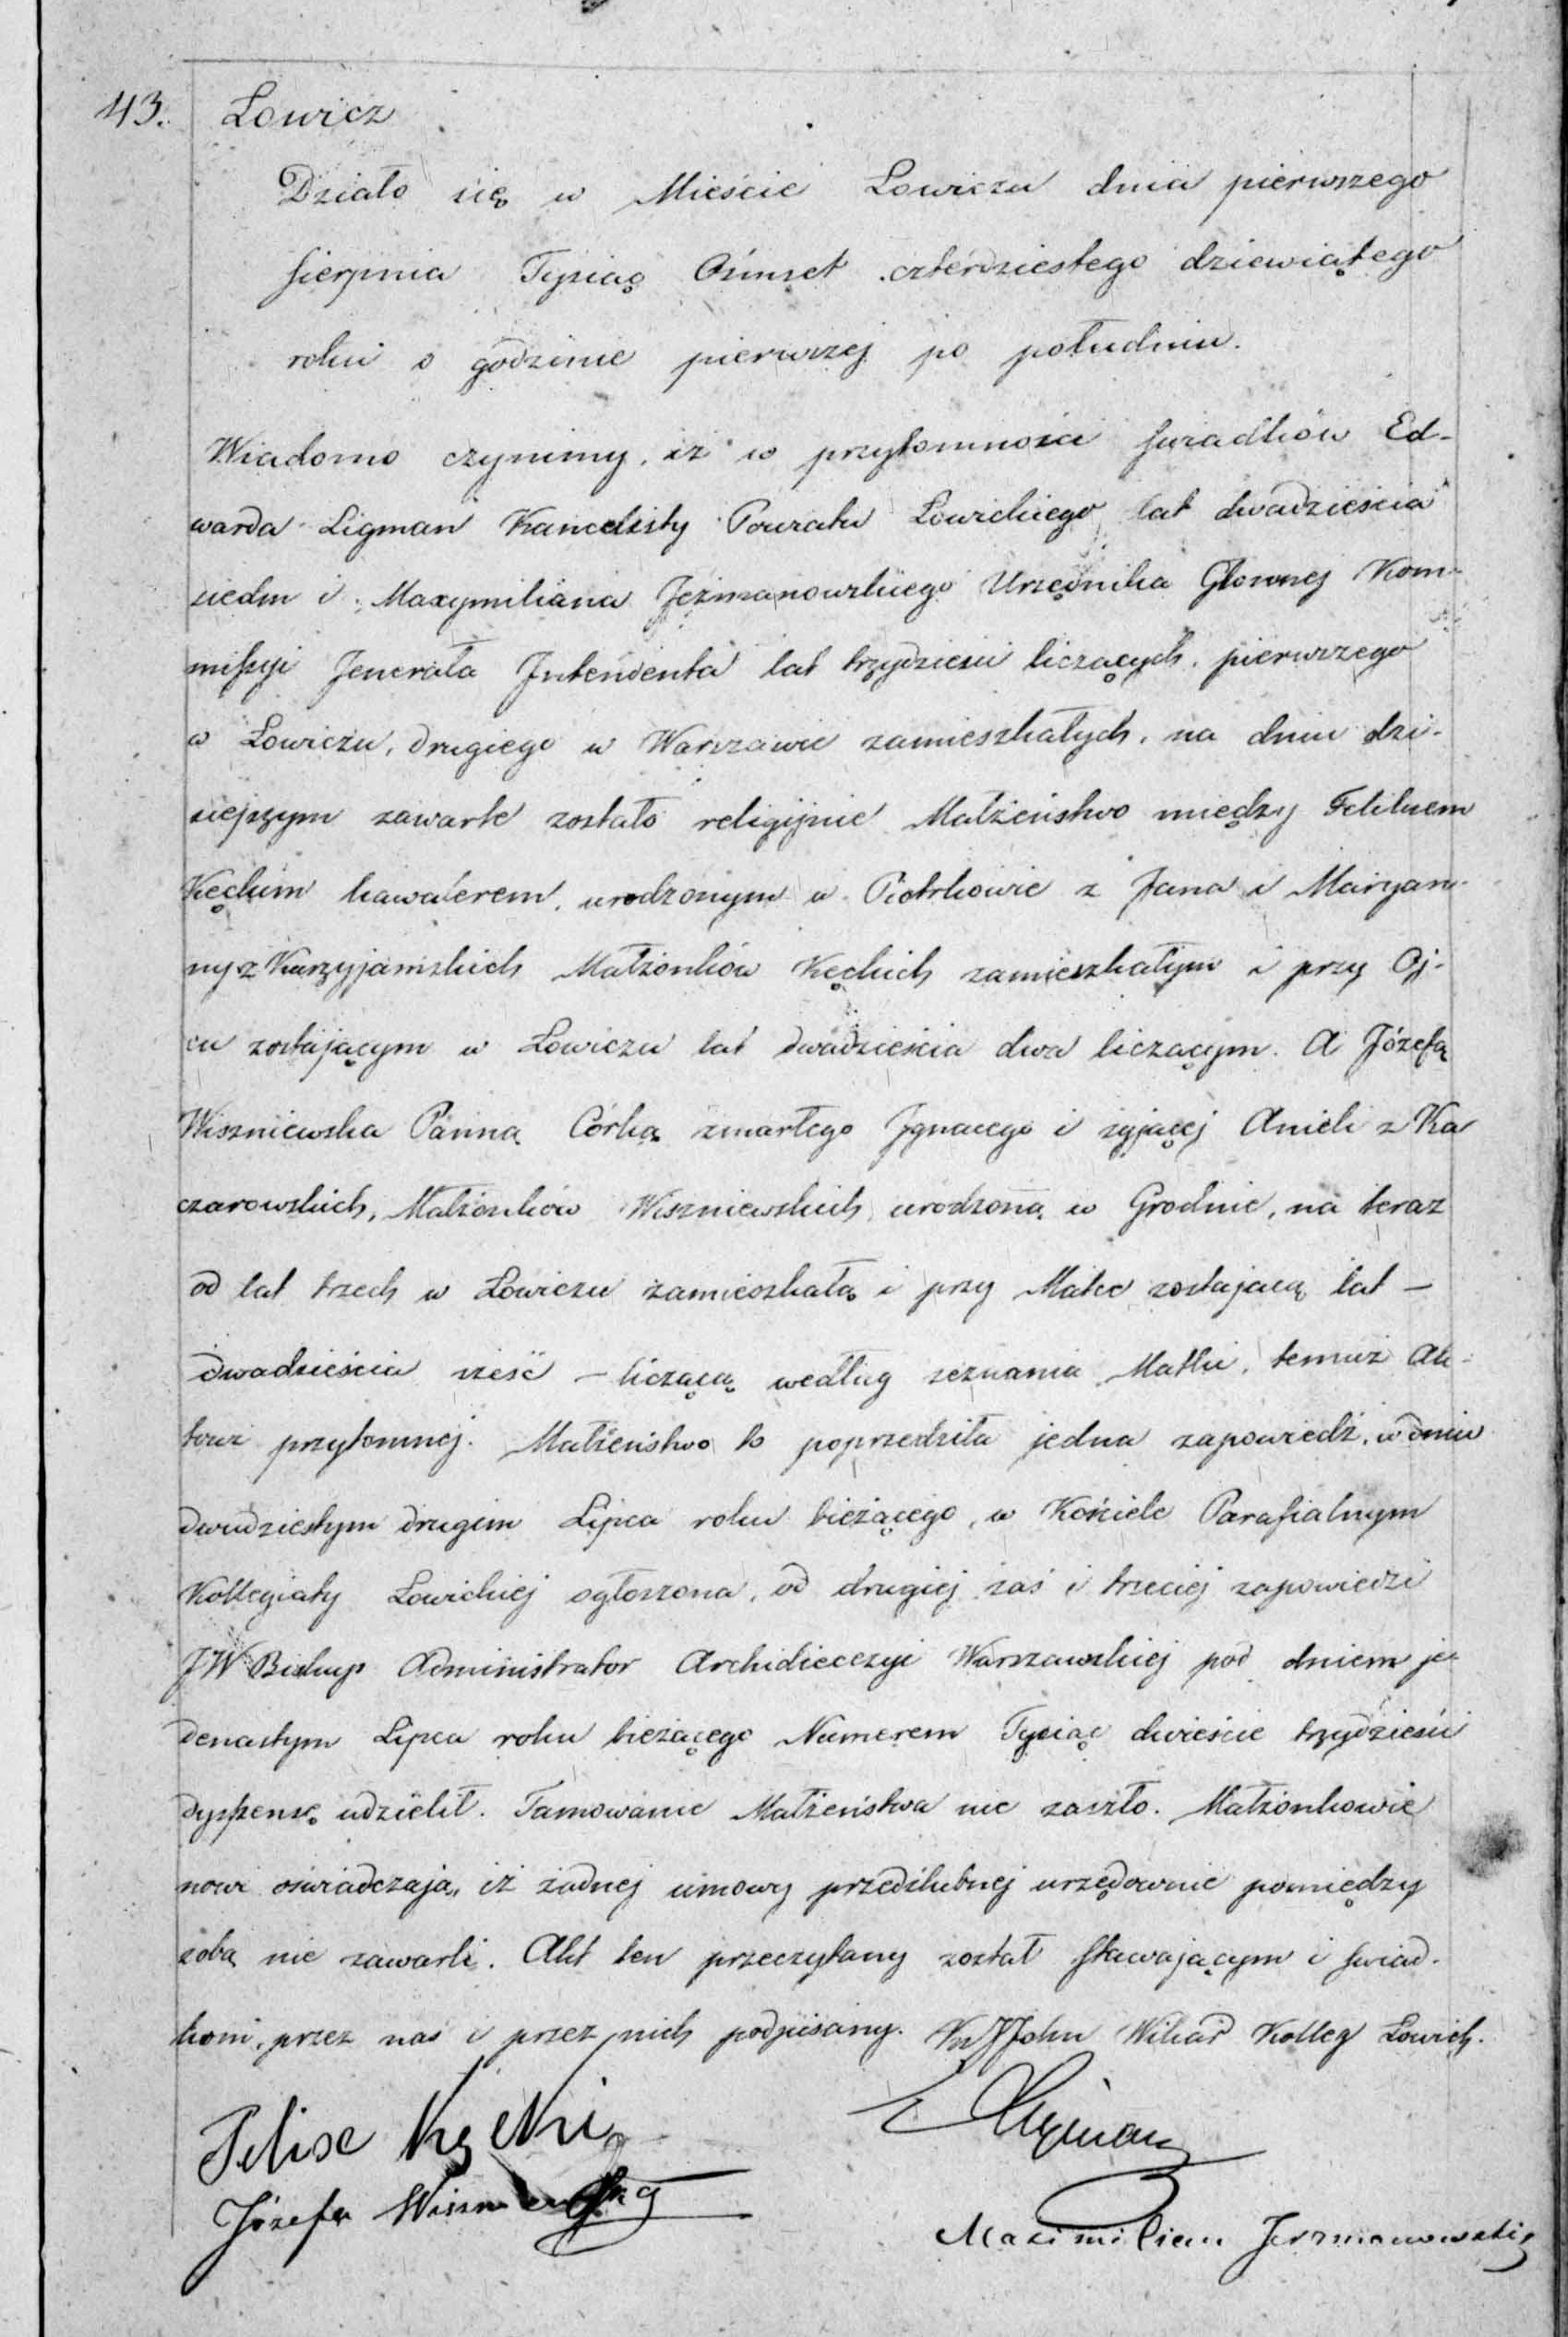 43. Łowicz
Działo się w Mieście Łowiczu dnia pierwszego
Sierpnia Tysiąc Ośmset czterdziestego dziewiątego
roku o godzinie pierwszej po południu.
Wiadomo czynimy, iż w przytomności świadków Ed-
warda Ligman Kancelisty Powiatu Łowickiego lat dwadzieścia
siedm i Maxymiliana Jeżmanowskiego Urzędnika Głownej Kom-
missyi Jenerała Intendenta lat trzydzieści liczących, pierwszego
w Łowiczu, drugiego w Warszawie zamieszkałych, na dniu dzi-
siejszym zawarte zostało religijnie Małżeństwo między Feliksem
Kęckim kawalerem, urodzonym w Piotrkowie z Jana i Maryan-
ny z Kurzyjamskich Małżonków Kęckich zamieszkałym i przy Oj-
cu zostającym w Łowiczu lat dwadzieścia dwa liczącym. A Józefą
Wiszniewska Panną Córką zmarłego Ignacego i żyjącej Anieli z Ka
czarowskich, Małżonków Wiszniewskich urodzoną w Grodnie, na teraz
od lat trzech w Łowiczu zamieszkałą i przy Matce zostającą lat —
dwadzieścia sześć — liczącą według zeznania Matki, temuż Ak-
towi przytomnej. Małżeństwo to poprzedziła jedna zapowiedź, w dniu
dwudziestym drugim Lipca roku bieżącego, w Kościele Parafialnym
Kollegiaty Łowickiej ogłoszona, od drugiej zaś i trzeciej zapowiedzi
JW Biskup Administrator Archidiecezyi Warszawskiej pod dniem je-
denastym Lipca roku bieżącego Numerem Tysiąc dwieście trzydzieści
dyspensę udzielił. Tamowanie Małżeństwa nie zaszło. Małżonkowie
nowi oświadczają, iż żadnej umowy przedślubnej urzędownie pomiędzy
sobą nie zawarli. Akt ten przeczytany został stawającym i świad-
kom, przez nas i przez nich podpisany. John Wikar Kolleg Łowick.
Felix Kęcki
Józefa Wiszniewska
Ligman
Maximilian Jerzmanowski